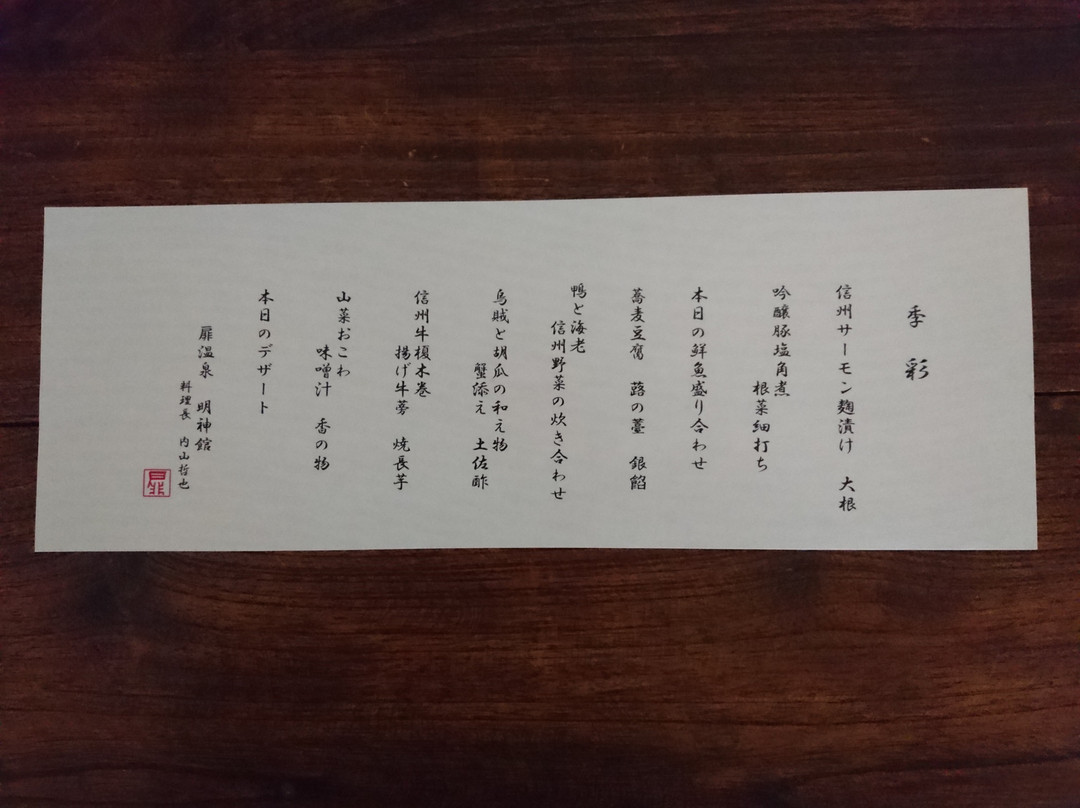 季彩
信州サーモン麹漬け　大根
吟醸豚塩角煮
根菜細打ち
本日の鮮魚盛り合わせ
蕎麦豆腐　蕗の薹　銀餡
鴨と海老
信州野菜の炊き合わせ
烏賊と胡瓜の和え物
蟹添え　土佐酢
信州牛榎木巻
揚げ牛蒡　焼長芋
山菜おこわ
味噌汁　香の物
本日のデザート
扉温泉　明神館
料理長　内山哲也
扉